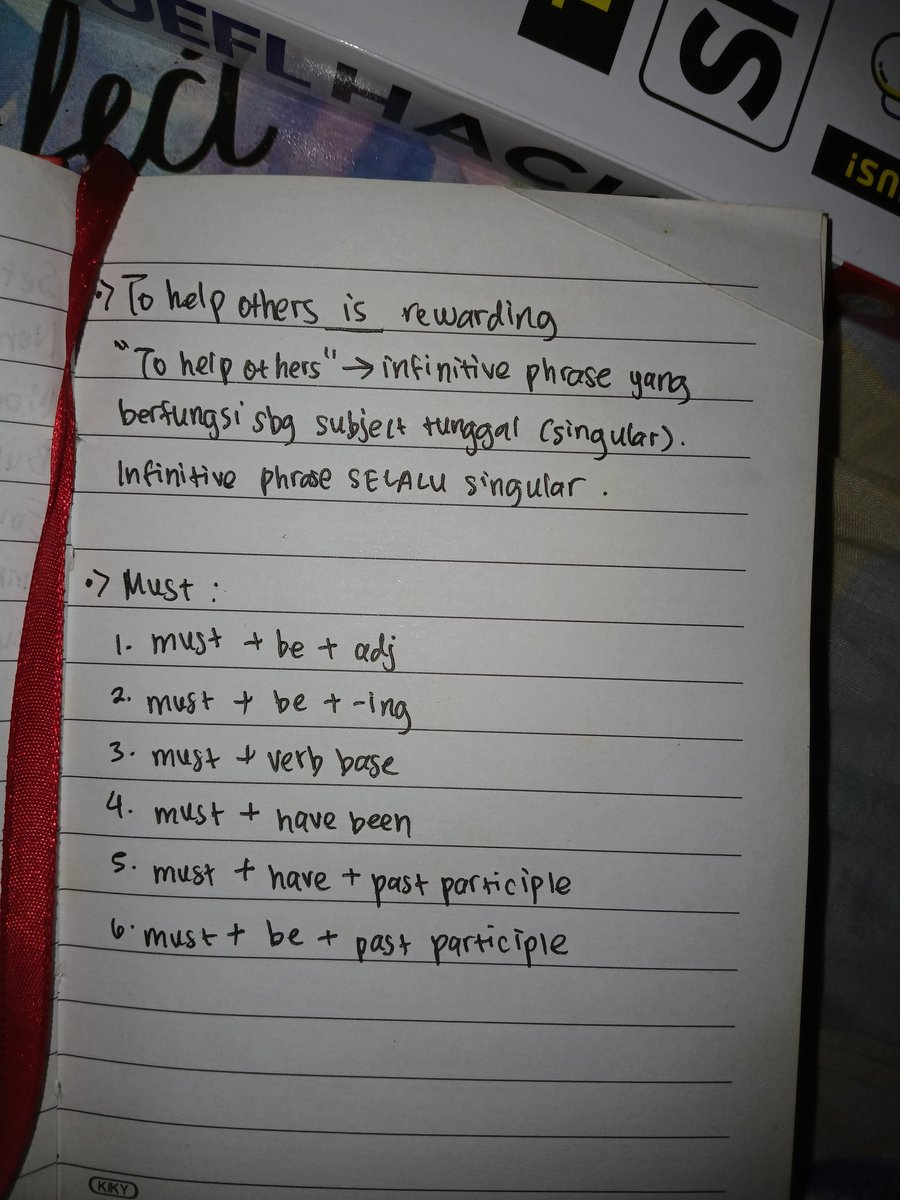 OEFL HACK
leći
SI
isnu
•> To help others is rewarding
"To help others" → infinitive phrase yang
berfungsi sbg subject tunggal (singular).
Infinitive phrase SELALU singular.
•> Must :
1. must + be + adj
2. must + be + -ing
3. must + verb base
4. must + have been
5. must + have + past participle
6. must + be + past participle
KIKY